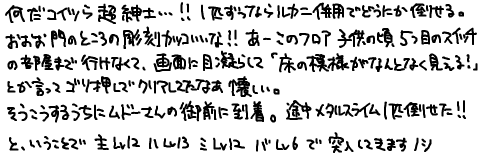 何だコイツら超紳士…!! 1匹ずつならルカニ併用でどうにか倒せる。
おおお門のところの彫刻カッコいいな!! あーこのフロア子供の頃5つ目のスイッチ
の部屋まで行けなくて、画面に目凝らして「床の模様がなんとなく見える!」
とか言ってゴリ押しでクリアしてたなあ 懐しい。
そうこうするうちにムドーさんの御前に到着。途中メタルスライム1匹倒せた!!
と、いうことで 主Lv12 ハLv13 ミLv12 バLv6 で突入してきますノシ